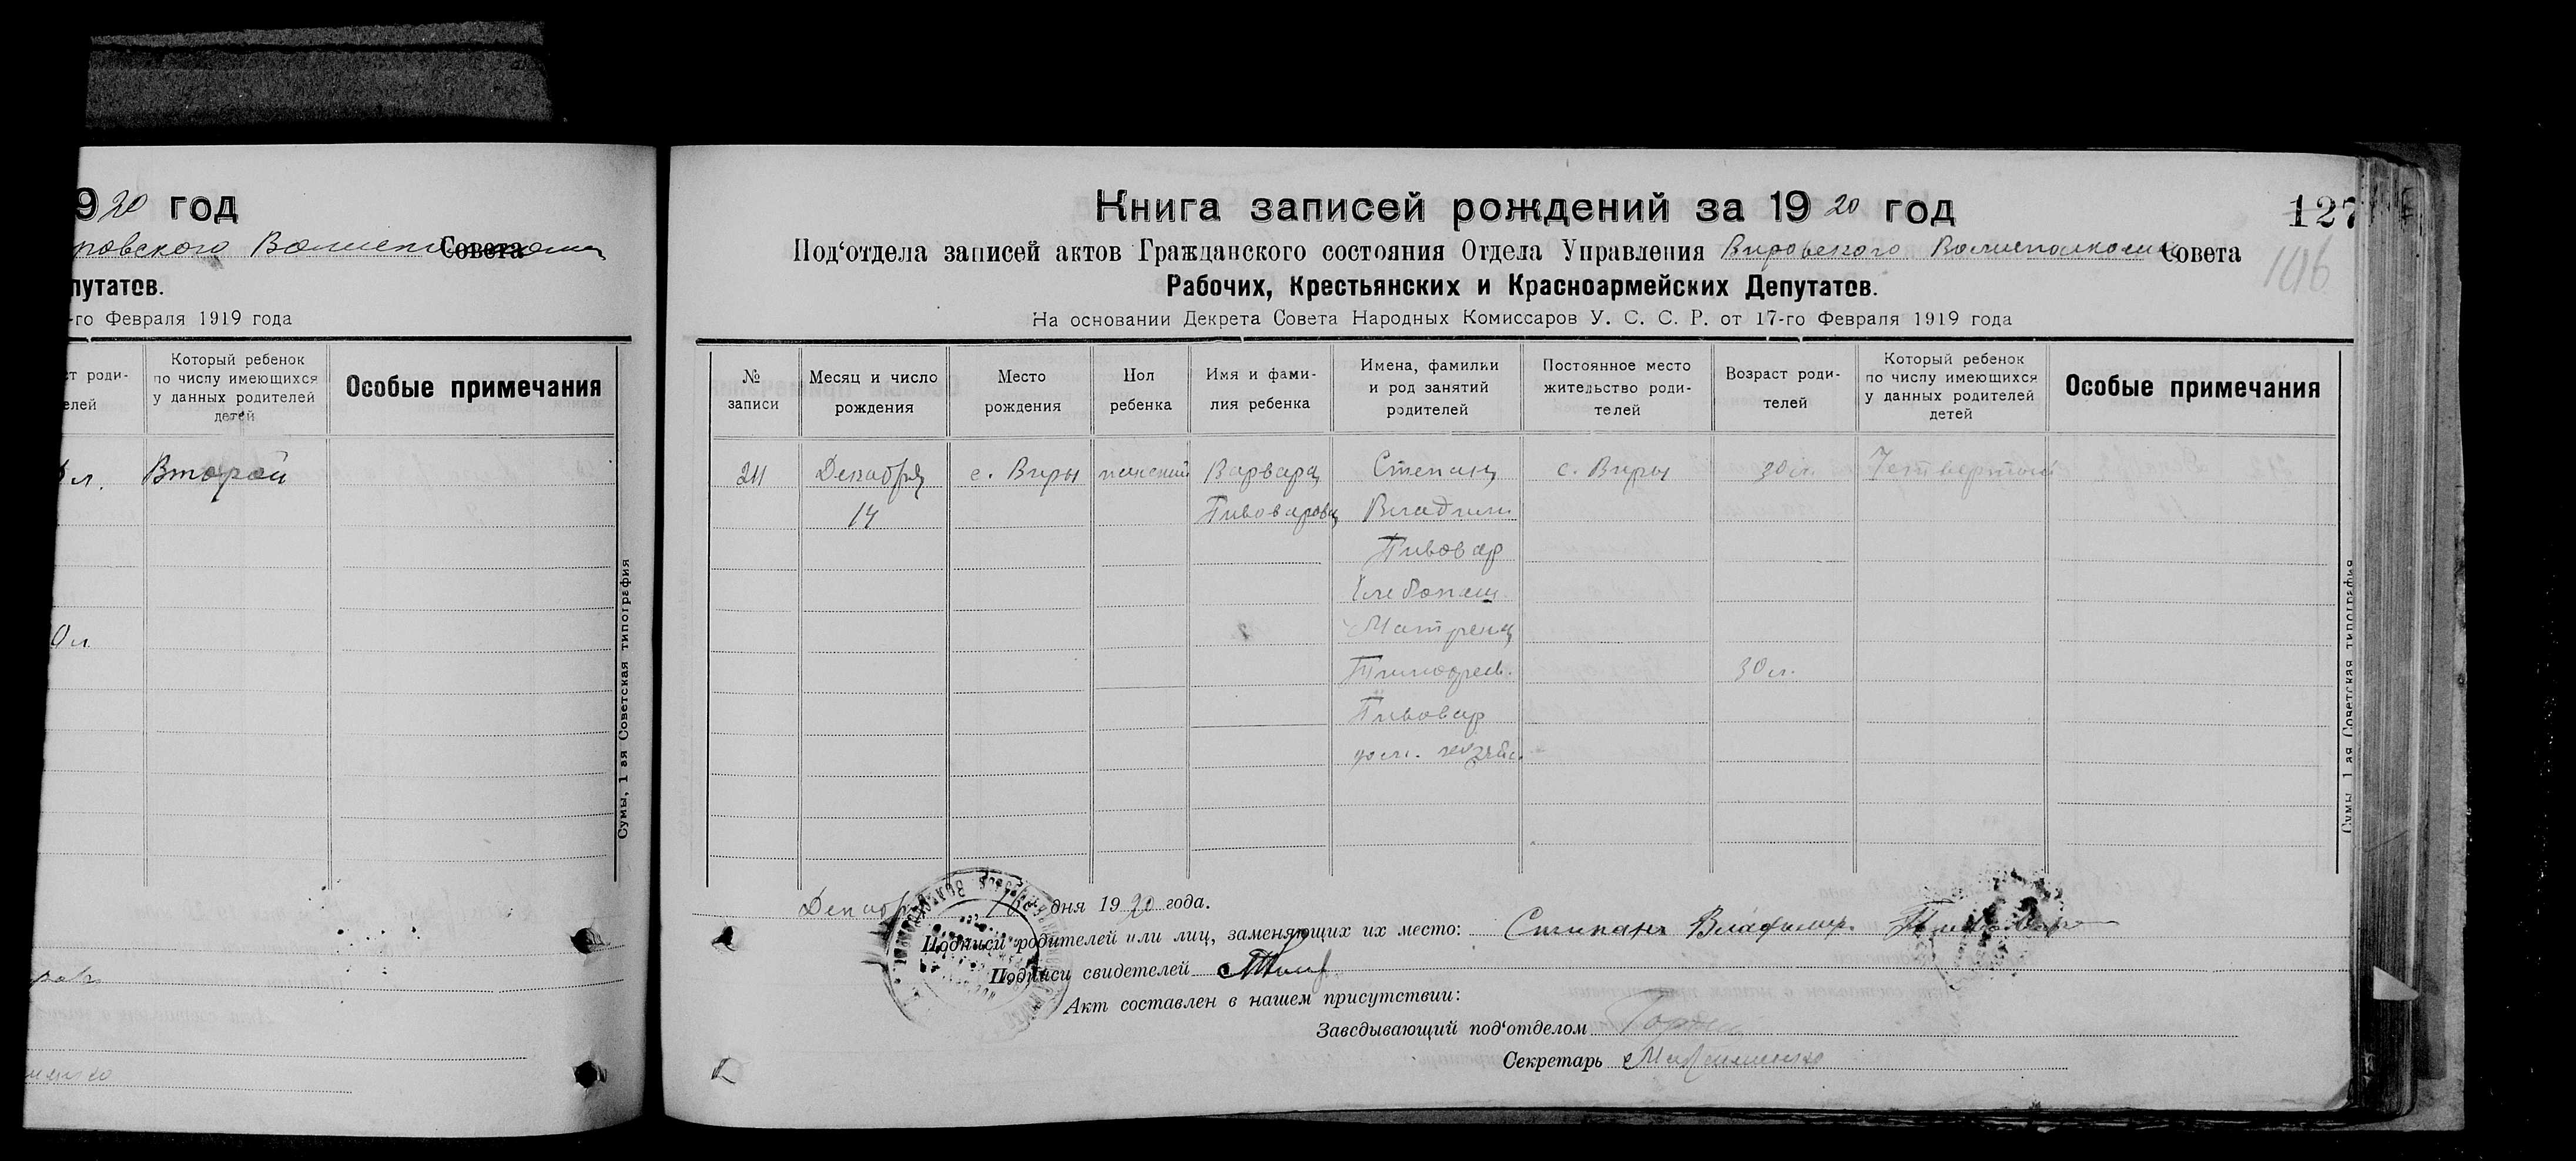 920 год
Совета
путатов.
-го Февраля 1919 года
ст роди-
елей
Который ребенок
по числу имеющихся
у данных родителей
детей
Особые примечания
л. Второй
0 л.
Сумы, 1 ая Советская типография
Книга записей рождений за 1920 год
127
Под‘отдела записей актов Гражданского состояния Отдела Управления Вировского Волисполкома Совета
106
Рабочих, Крестьянских и Красноармейских Депутатов.
На основании Декрета Совета Народных Комиссаров У. С. С. Р. от 17-го Февраля 1919 года
№
записи
Месяц и число
рождения
Место
рождения
Пол
ребенка
Имя и фами-
лия ребенка
Имена, фамилии
и род занятий
родителей
Постоянное место
жительство роди-
телей
Возраст роди-
телей
Который ребенок
по числу имеющихся
у данных родителей
детей
Особые примечания
Декабря с. Виры женский Варвара Степан с. Виры 30 л. Четвертый
14 Пивоварова Владим
Пивовар
Хлебопаш.
Матрена
Тимофеев. 30 л.
Пивовар
дом. хозяйс.
Декабря дня 1920 года.
Подписи родителей или лиц, заменяющих их место: Степан Владимир. Пивовар
Подписи свидетелей
Акт составлен в нашем присутствии:
Заведывающий под‘отделом
Секретарь
Сумы 1 ая Советская типография